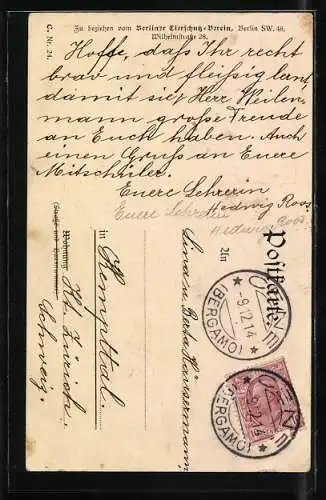 C. Nr. 24.
Zu beziehen vom Berliner Tierschutz-Verein, Berlin SW. 48,
Wilhelmstraße 28.
Hoffe, daß Ihr recht
brav und fleißig lernt,
damit sich Herr Weilen-
mann große Freude
an Euch haben. Auch
einen Gruss an Euere
Mitschüler.
Euere Lehrerin
Hedwig Roos
Euere Lehrerin
Hedwig Roos
Postkarte.
An
Lina u. Berta Hünsermann
in Kempttal.
Wohnung Kt. Zürich.
(Straße und Hausnummer)
Schweiz.
9.12.14
(BERGAMO)
9.12.14
(BERGAMO)